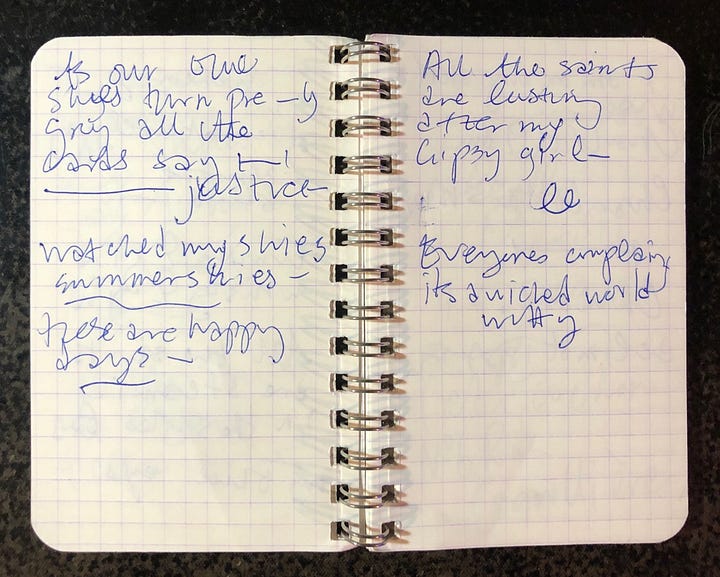 As our blue
skies turn pre—y
grey all the
cards say —
justice
watched my skies
summer skies —
these are happy
days —
All the saints
are lusting
after my
Gipsy girl —
Everyones complaing
its a wicked world
witty